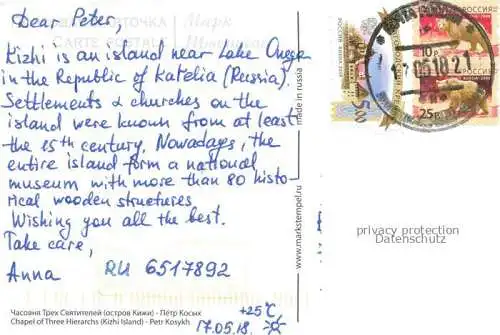 Dear Peter,
Kizhi is an island near Lake Onega
in the Republic of Katelia (Russia).
Settlements & churches on the
island were known from at least
the 15th century. Nowadays, the
entire island form a national
museum with more than 80 histo-
rical wooden structures
Wishing you all the best.
Take care,
Anna RU 6517892
+25°C
17.05.18.
Часовня Трех Святителей (остров Кижи) - Пётр Косых
Chapel of Three Hierarchs (Kizhi Island) - Petr Kosykh
CARTE POSTALE
Марк
made in russia
www.markstempel.ru
РОССИЯ
5.00
РОССИЯ
10 р
25 р
05 18 21
privacy protection
Datenschutz